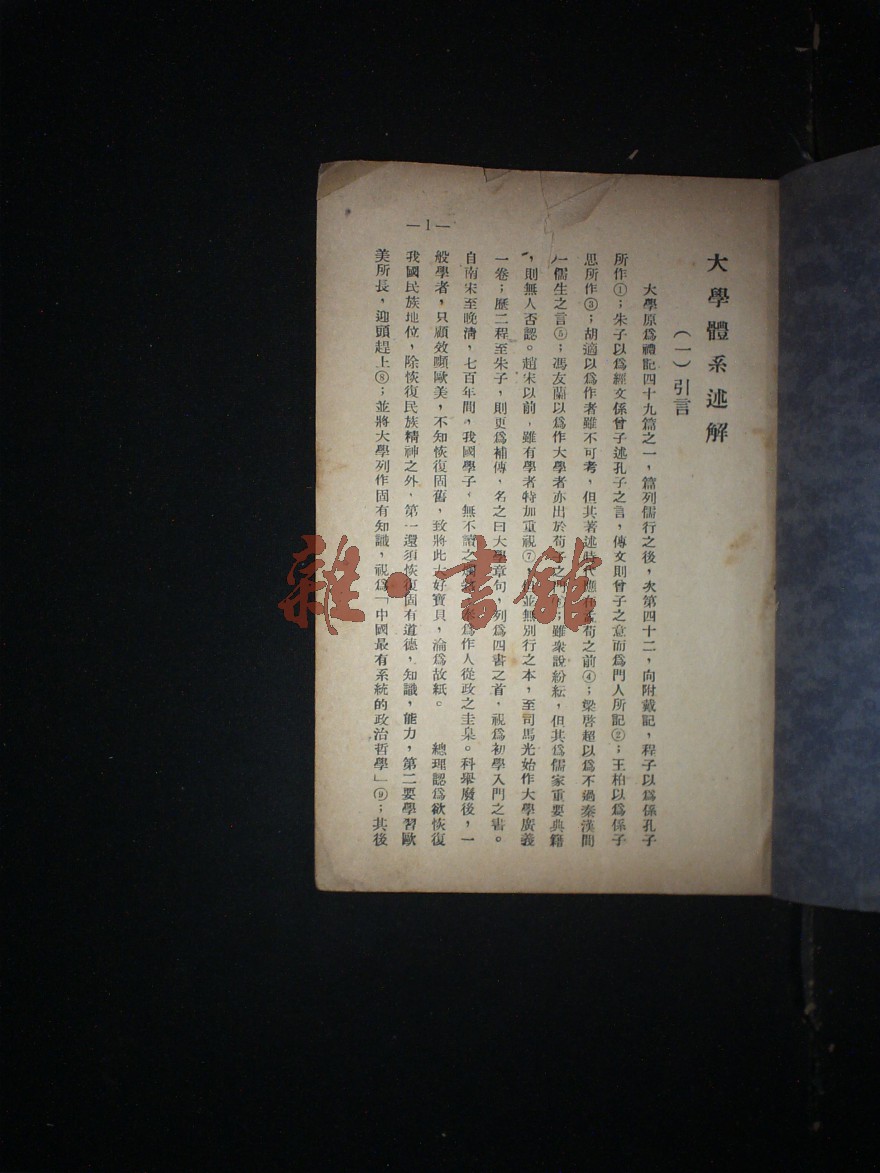 大學體系述解
（一）引言
大學原爲禮記四十九篇之一，篇列儒行之後，次第四十二，向附戴記，程子以爲係孔子
所作①；朱子以爲經文係曾子述孔子之言，傳文則曾子之意而爲門人所記②；王柏以爲係子
思所作③；胡適以爲作者雖不可考，但其著述時代應在孟荀之前④；梁啓超以爲不過秦漢間
一儒生之言⑤；馮友蘭以爲作大學者亦出於荀子之門；雖衆說紛紜，但其爲儒家重要典籍
，則無人否認。趙宋以前，雖有學者特加重視⑦，但並無別行之本，至司馬光始作大學廣義
一卷；歷二程至朱子，則更爲補傳，名之曰大學章句，列爲四書之首，視爲初學入門之書。
自南宋至晚清，七百年間，我國學子，無不讀之爲作人從政之圭臬。科舉廢後，一
般學者，只顧效顰歐美，不知恢復固舊，致將此大好寶貝，淪爲故紙。　總理認爲欲恢復
我國民族地位，除恢復民族精神之外，第一還須恢復固有道德，知識，能力，第二要學習歐
美所長，迎頭趕上⑧；並將大學列作固有知識，視爲「中國最有系統的政治哲學」⑨；其後
—1—
雜·書館